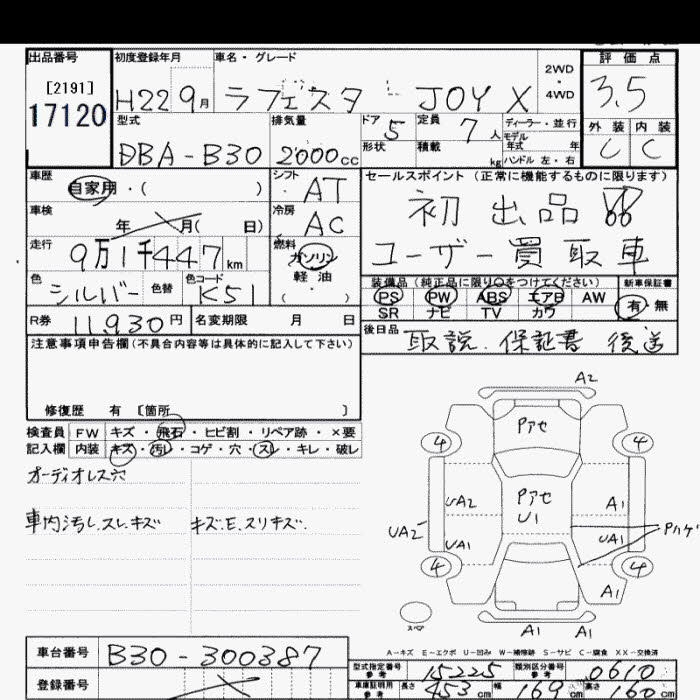 出品番号 初度登録年月 車名・グレード 2WD・4WD 評価点
[2191]
17120 H22 9月 ラフェスタ JOY X 3.5
型式 排気量 ドア 5 定員 7人 ディーラー・並行 外装 内装
形状 積載 kg モデル年式 年式 ハンドル 左・右 C C
DBA-B30 2000cc
車歴 自家用・( ) シフト AT セールスポイント(正常に機能するものに限ります)
車検 年 月( 日) 冷房 AC 初出品!!
走行 9万1千447km 燃料 ガソリン 軽・油 ( ) ユーザー買取車
色 シルバー 色替 色コード K51 装備品(純正品に限り○をつけてください) 新車保証書
PS PW ABS エアB AW 有・無
SR ナビ TV カワ
R券 11,930円 名変期限 月 日 後日品 取説.保証書 後送
注意事項申告欄(不具合内容等は具体的に記入して下さい)
修復歴 有 [箇所 ]
検査員 FW キズ・飛石・ヒビ割・リペア跡・×要
記入欄 内装 キズ・汚れ・コゲ・穴・スレ・キレ・破レ
オーディオレス穴
車内汚レ.スレ.キズ キズE.スリキズ.
A2
Pアセ
4 4
Pアセ
U1
UA2 A1
UA2 UA1 UA1 Pハゲ
4 4
A1
スペア A1 A1
A-キズ E-エクボ U-凹み W-補修跡 S-サビ C-腐食 XX-交換済
車台番号 B30-300387
型式指定番号 参考 15225 類別区分番号 参考 0610
登録番号 車庫証明用 参考 長さ 453cm 幅 169cm 高さ 160cm